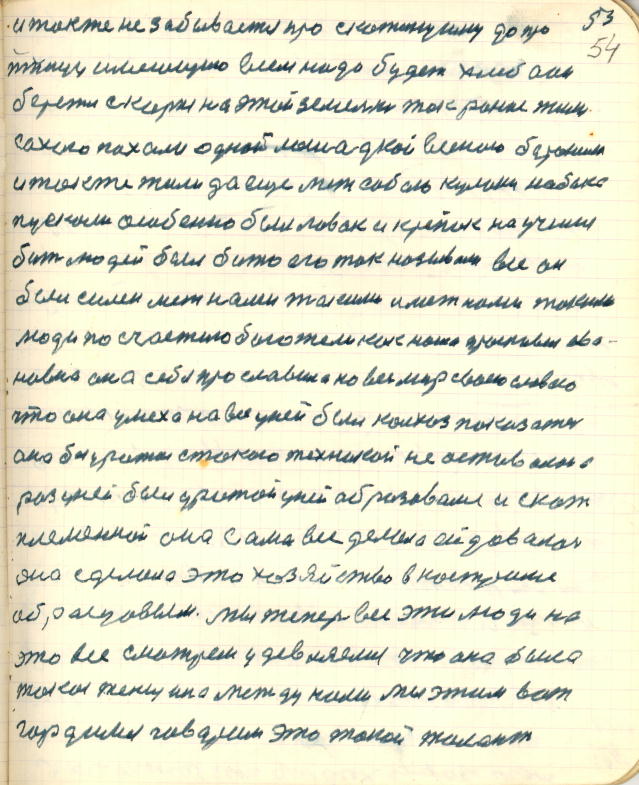 53
54
и также не забывается про скотинушку до про
птицу имеющую всем надо будет хлеб они
бережи скорти на этой земельки так ранше жили
сохого пахали одной лошадкой весною боронили
и также жили да еще меж собою кулаки на бока
пускали особенно был ловак и крепок научили
бит людей был бито его так називали все он
был силен меж нами такими и меж нами такими
люди по счастию богатели как наша прасковья ива-
новна она себя прославила на весь мир своею славою
что она умеха на все у ней был колхоз показател
она бы урожаи с такого техникой не оставалон
раз у ней был урожай у ней образовался и скот
племенной она сама все делала
она сделала это хозяйство в костроме
образцовым. мы тепер все эти люди на
это все смотрем удевляемся что она была
такая женщина между нами мы этим вот
гордимся говарим это такой талант